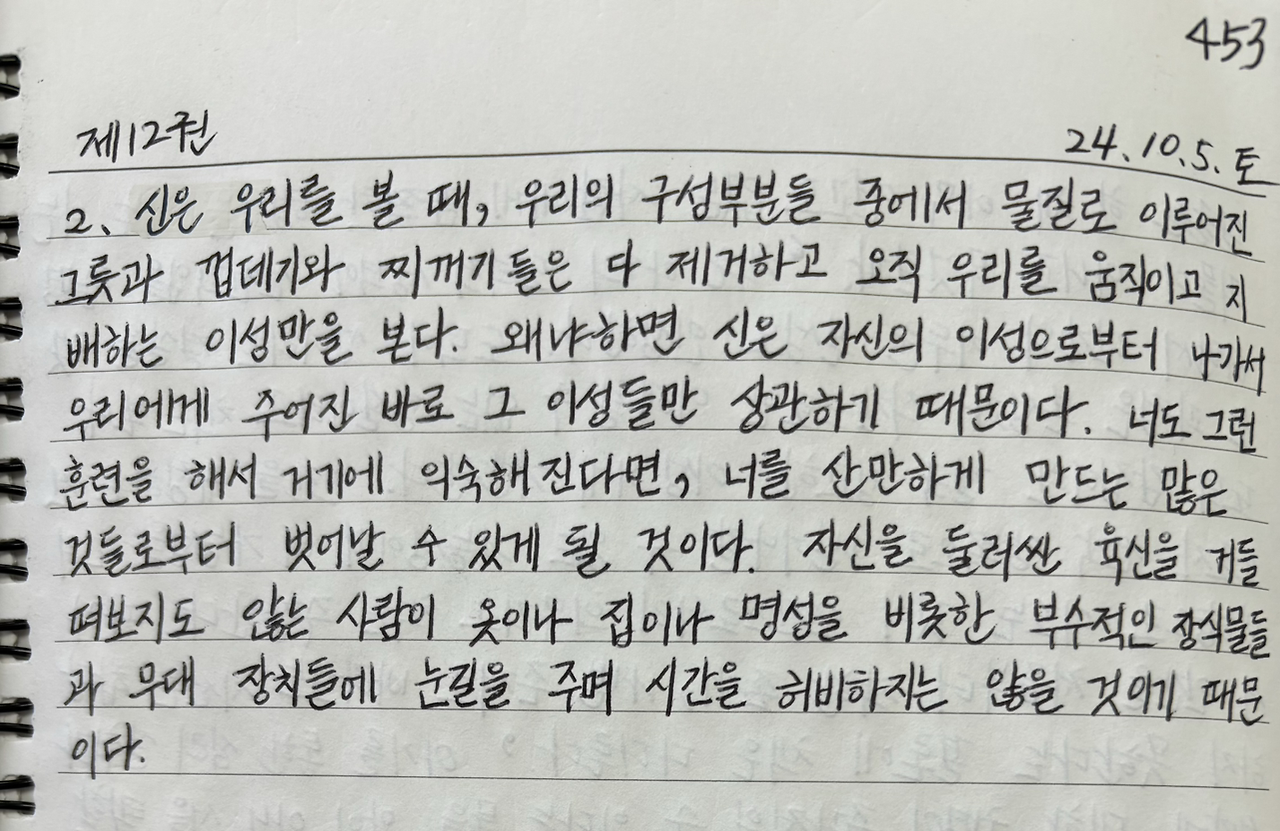 453
제12권
24.10.5.토
2. 신은 우리를 볼 때, 우리의 구성부분들 중에서 물질로 이루어진
그릇과 껍데기와 찌꺼기들은 다 제거하고 오직 우리를 움직이고 지
배하는 이성만을 본다. 왜냐하면 신은 자신의 이성으로부터 나가서
우리에게 주어진 바로 그 이성들만 상관하기 때문이다. 너도 그런
훈련을 해서 거기에 익숙해진다면, 너를 산만하게 만드는 많은
것들로부터 벗어날 수 있게 될 것이다. 자신을 둘러싼 육신을 거들
떠보지도 않는 사람이 옷이나 집이나 명성을 비롯한 부수적인 장식물들
과 무대 장치들에 눈길을 주며 시간을 허비하지는 않을 것이기 때문
이다.